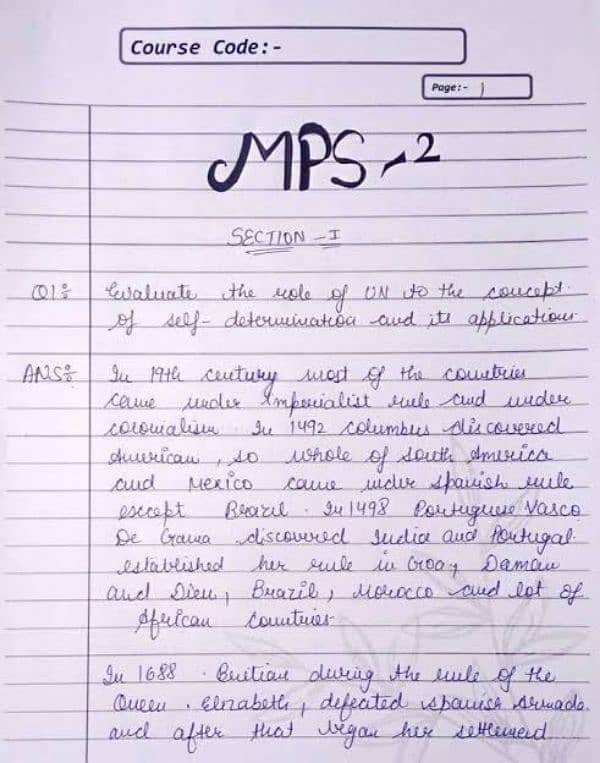 Course Code:-
Page:- 1
MPS-2
SECTION-I
Q1: Evaluate the role of UN to the concept
of self-determination and its application
ANS: In 19th century most of the countries
came under Imperialist rule and under
colonialism. In 1492 columbus discovered
American, so whole of South America
and Mexico came under spanish rule
except Brazil. In 1498 Portuguese Vasco
De Gama discovered India and Portugal
established her rule in Goa, Daman
and Dieu, Brazil, Morocco and lot of
African Countries.
In 1688. Britian during the rule of the
Queen. Elnzabeth, defeated spanish Armada
and after that began her settlement